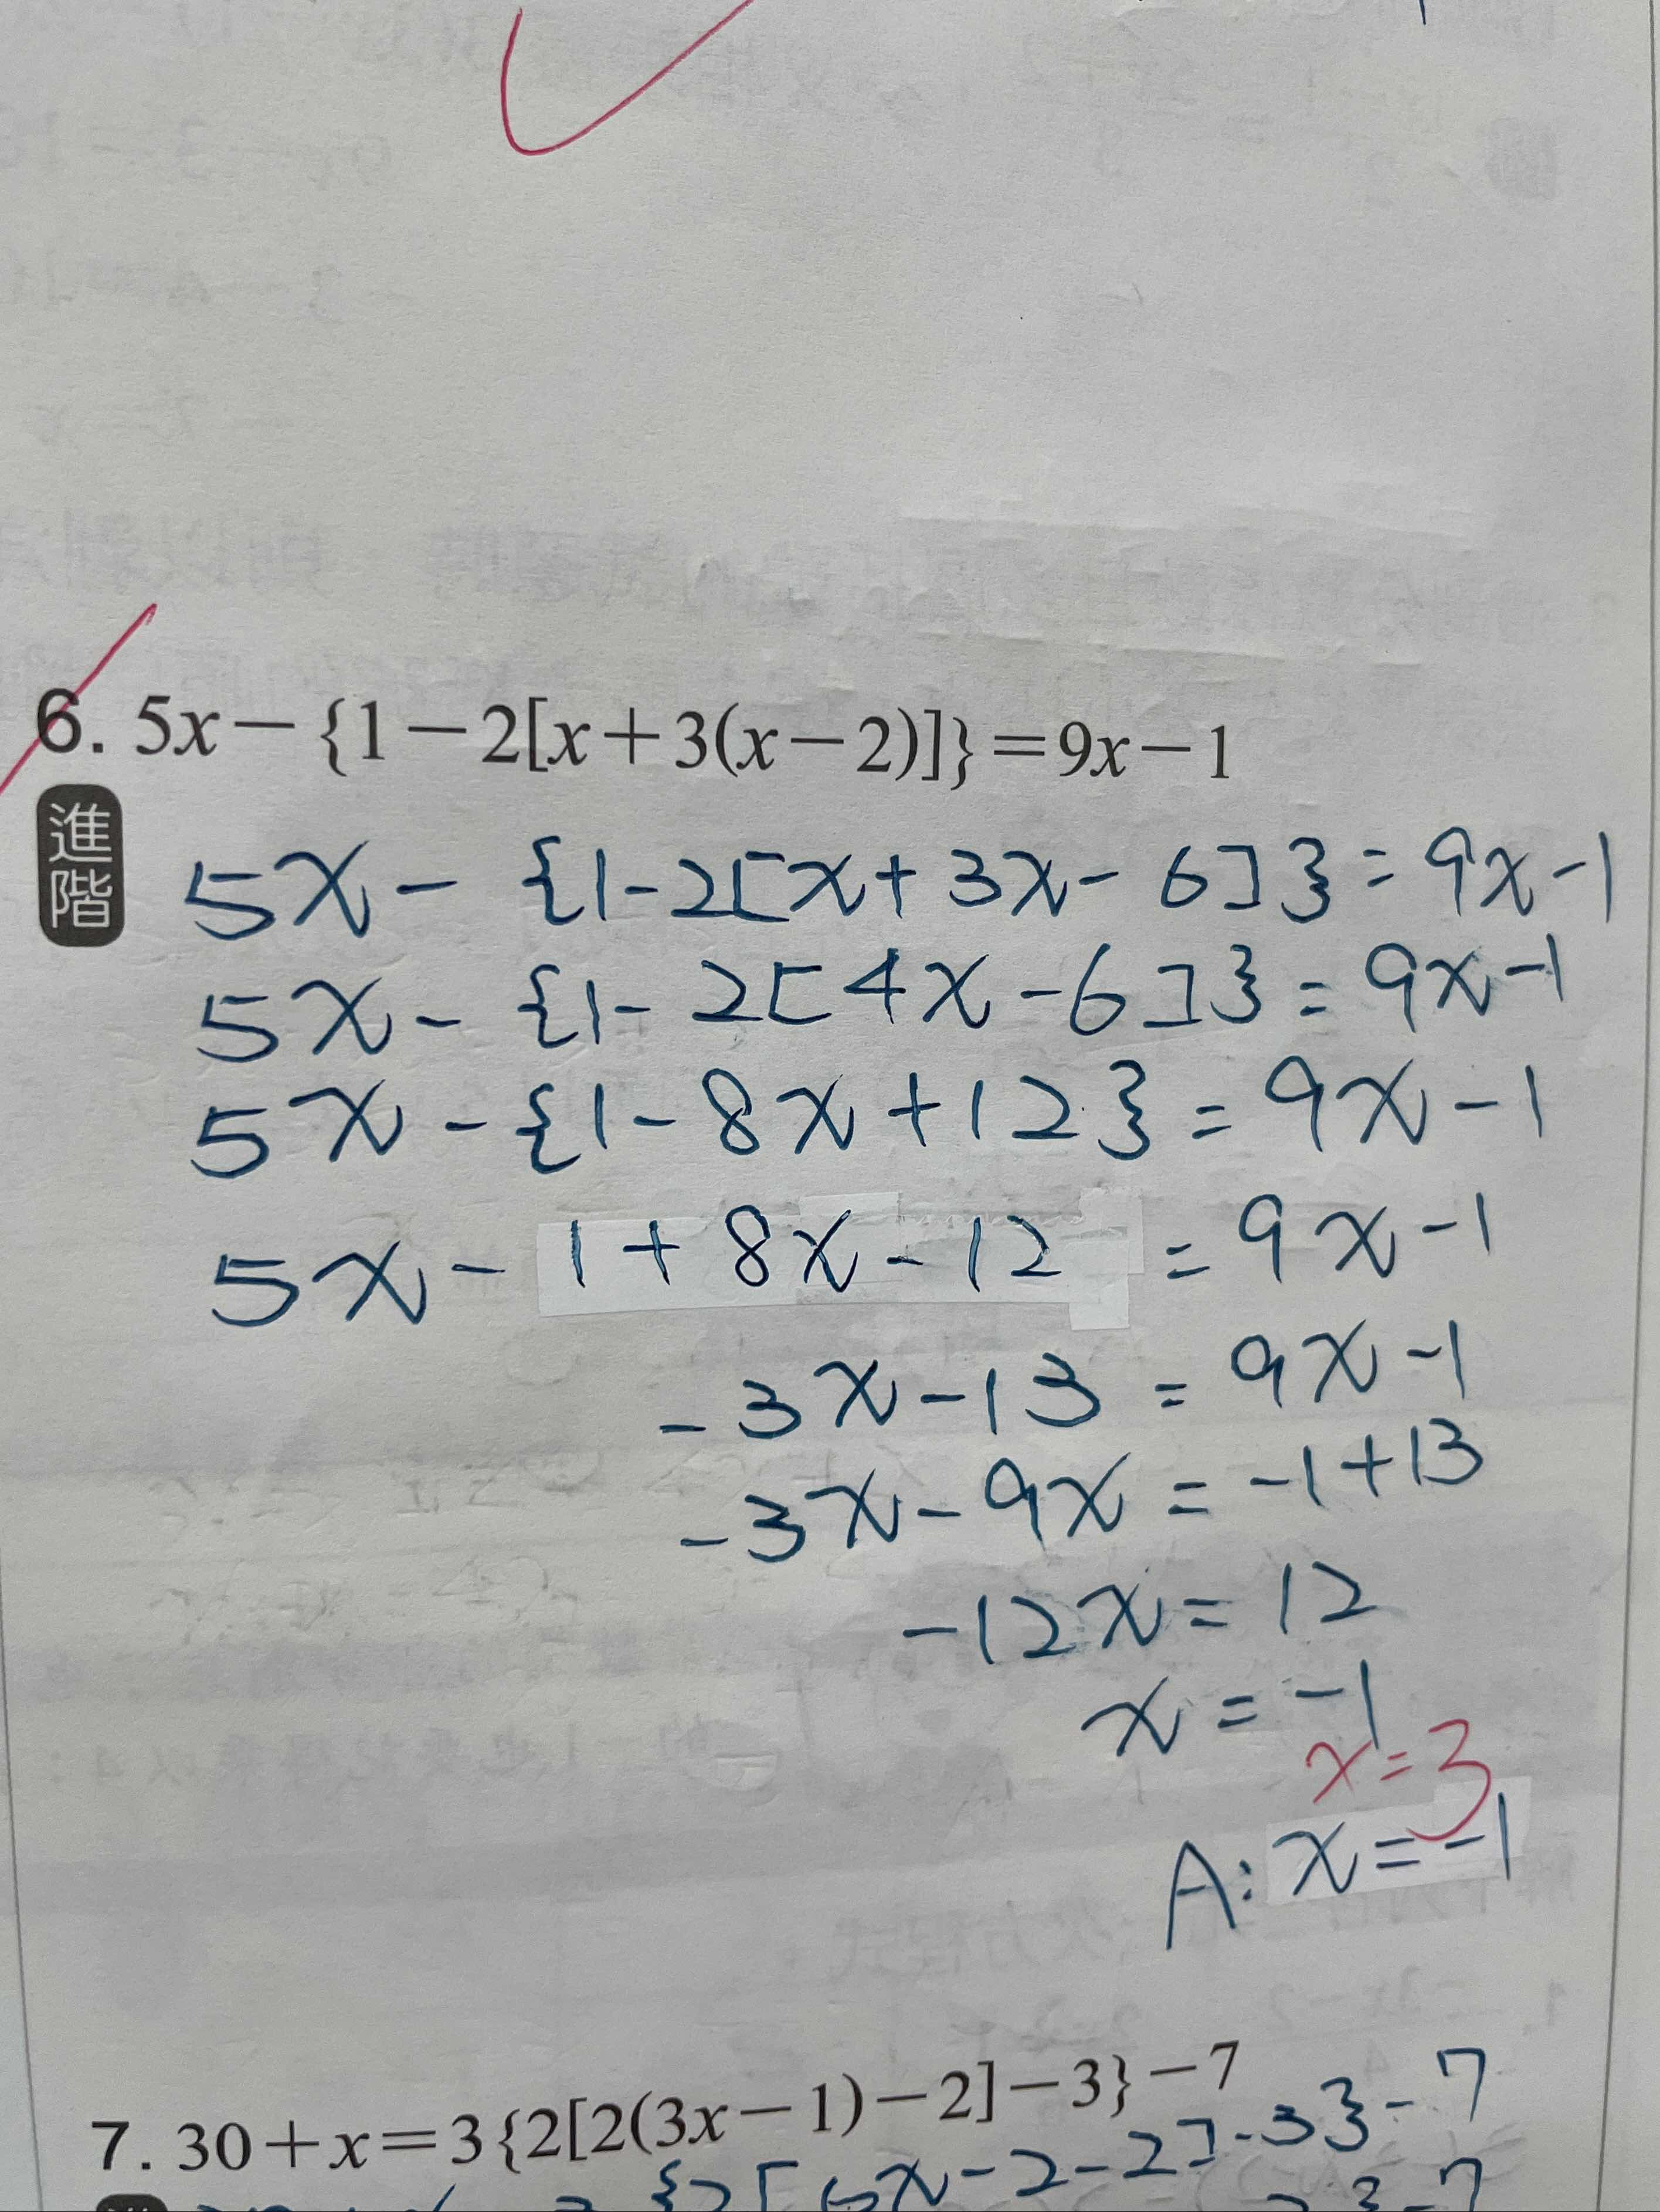 6. 5x－{1－2[x＋3(x－2)]}＝9x－1
進階
5x - {1-2[x+3x-6]} = 9x-1
5x - {1-2[4x-6]} = 9x-1
5x - {1-8x+12} = 9x-1
5x - 1+8x-12 = 9x-1
-3x-13 = 9x-1
-3x-9x = -1+13
-12x = 12
x = -1
x=3
A: x=-1
7. 30＋x＝3{2[2(3x－1)－2]－3}－7